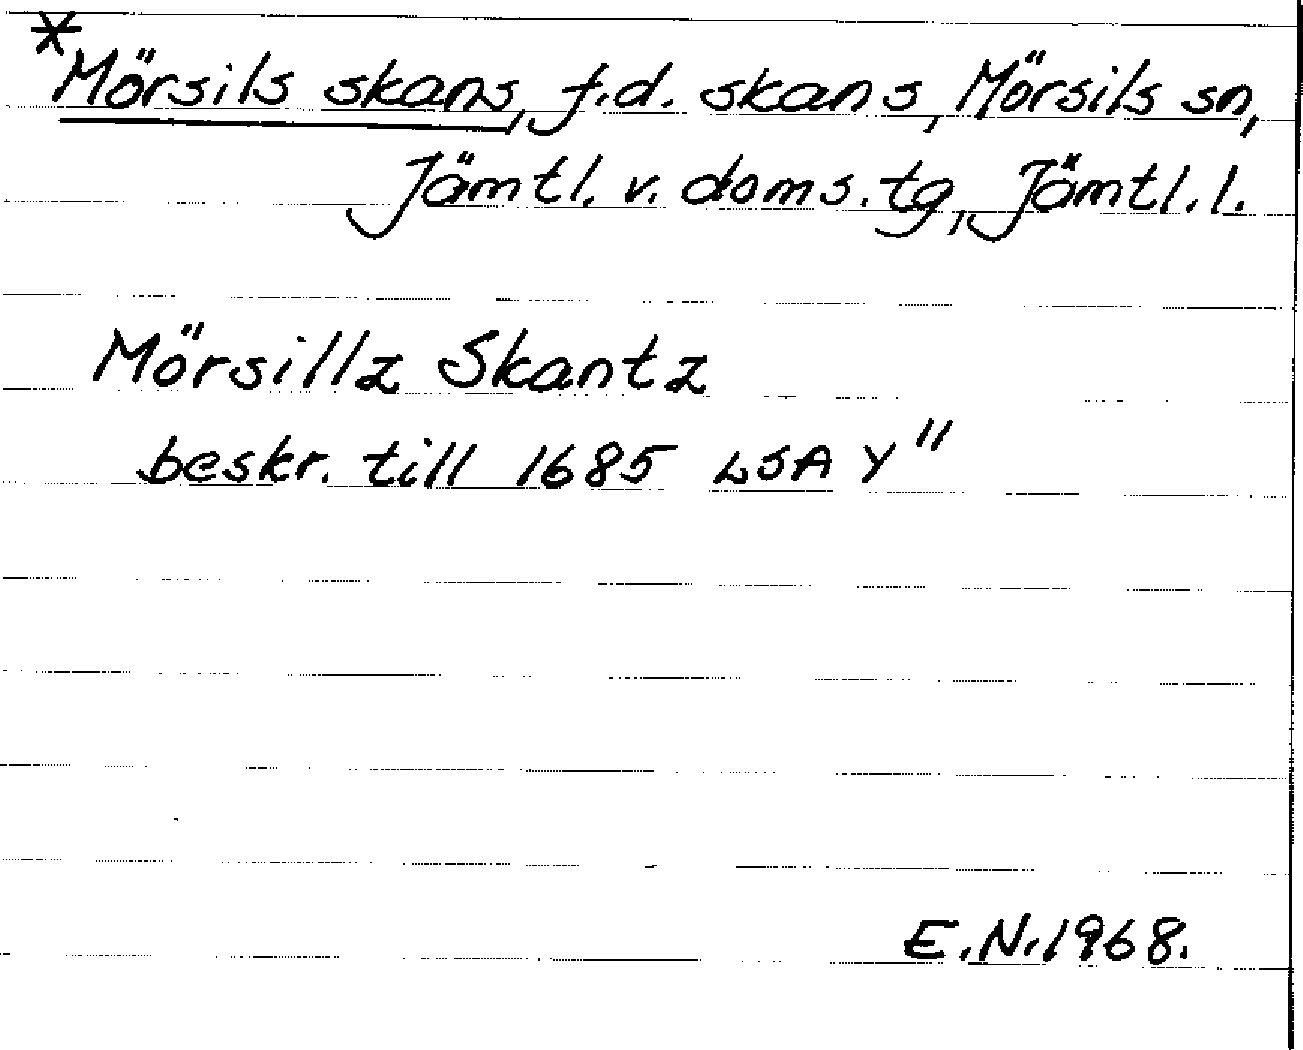 *Mörsils skans, f.d. skans, Mörsils sn,
Jämtl. v. doms.tg, Jämtl. l.
Mörsillz Skantz
beskr. till 1685 LSA Y"
E.N. 1968.